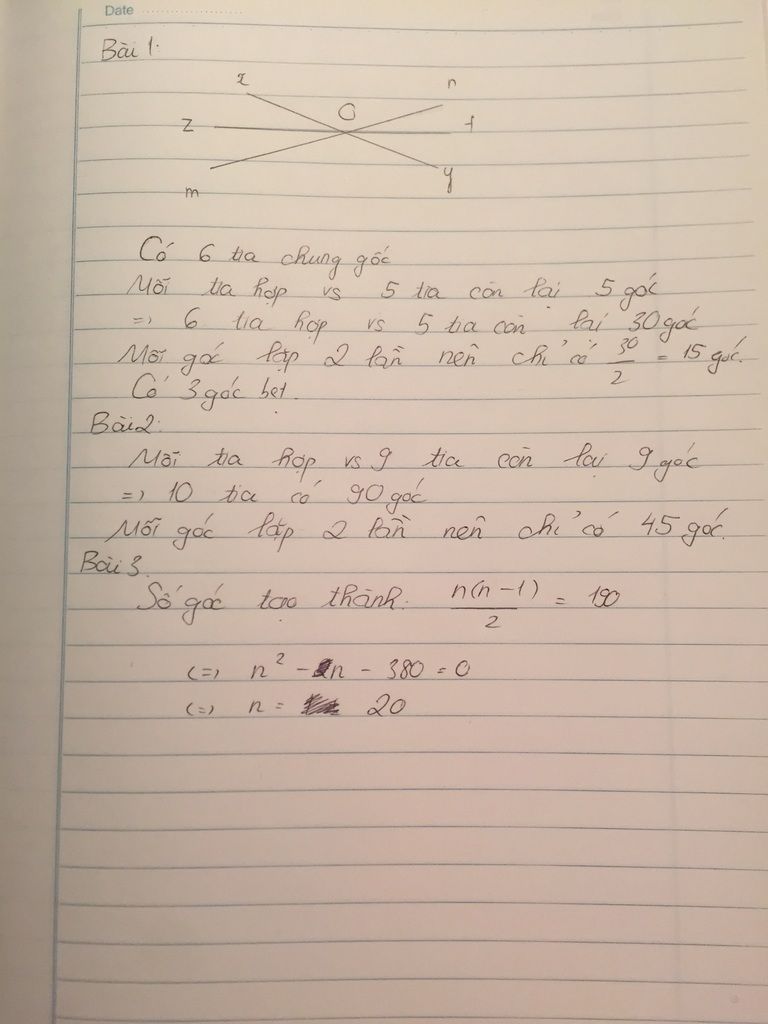 Date
Bài 1:
x n
O
z t
m y
Có 6 tia chung gốc
Mỗi tia hợp vs 5 tia còn lại 5 góc
=> 6 tia hợp vs 5 tia còn lại 30 góc
Mỗi góc lặp 2 lần nên chỉ có 30/2 = 15 góc.
Có 3 góc bẹt.
Bài 2:
Mỗi tia hợp vs 9 tia còn lại 9 góc
=> 10 tia có 90 góc
Mỗi góc lặp 2 lần nên chỉ có 45 góc.
Bài 3.
Số góc tạo thành: n(n-1)/2 = 190
<=> n² - n - 380 = 0
<=> n = 20